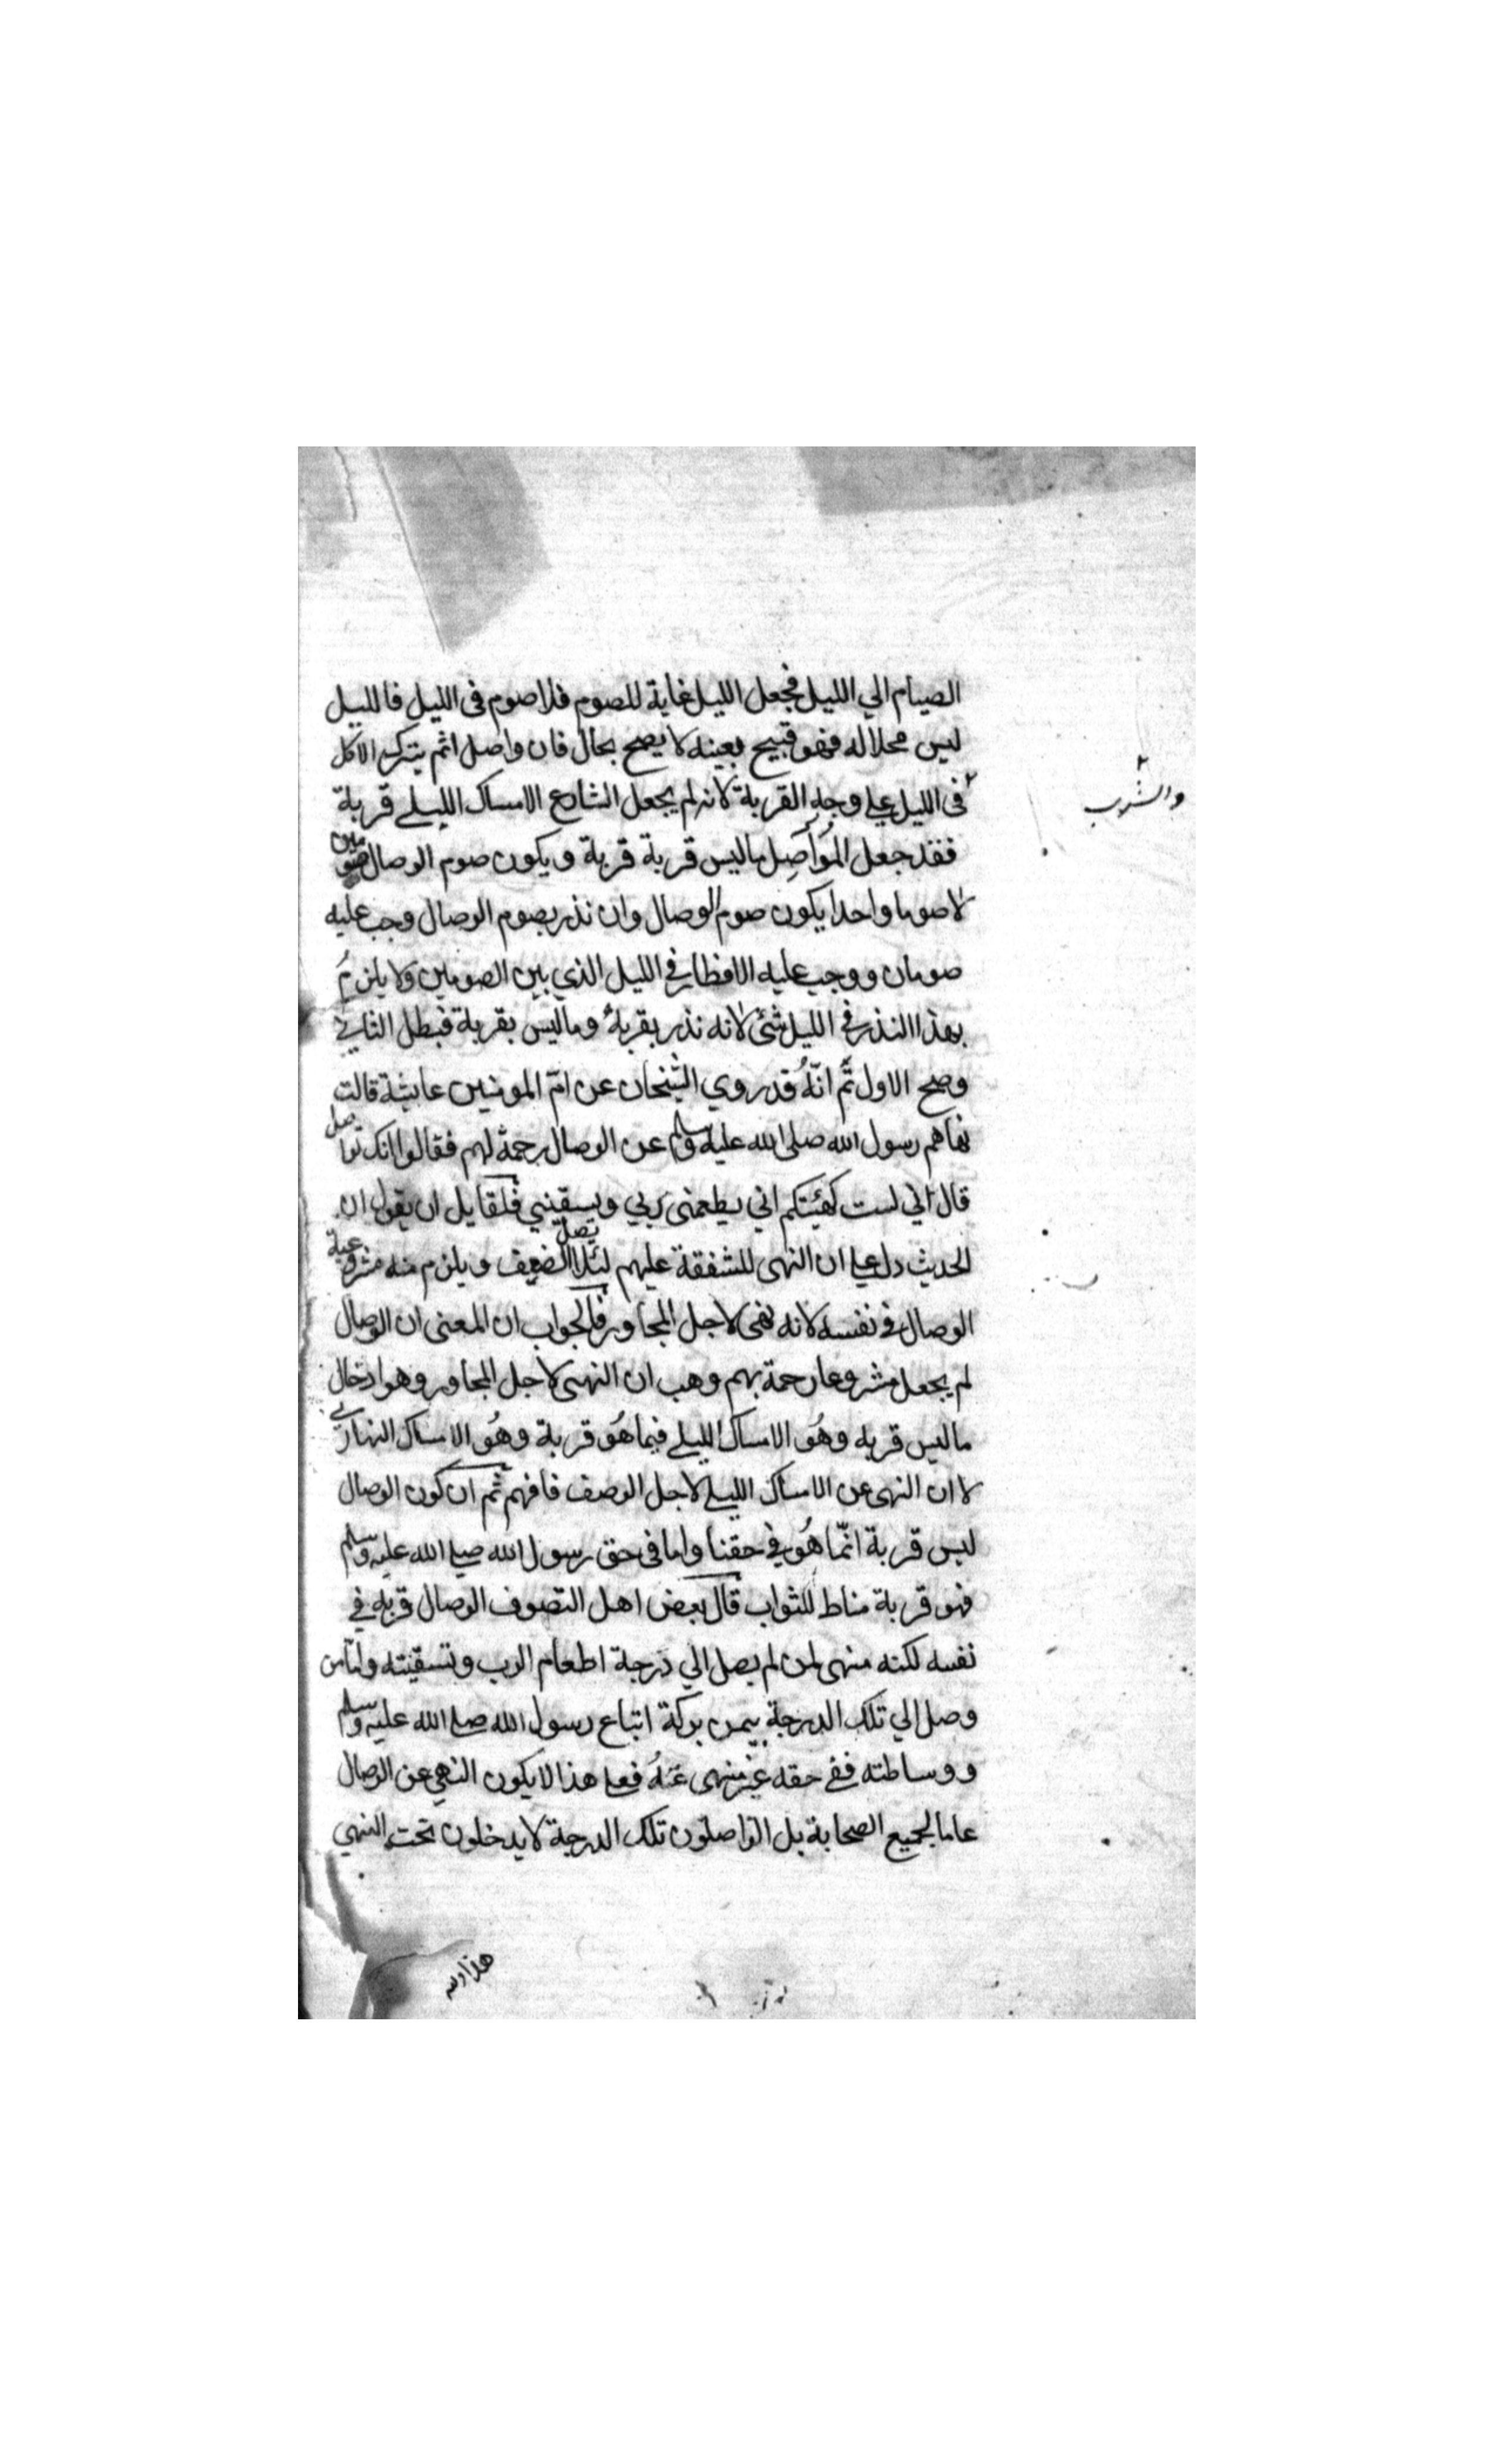 الصيام الي الليل فجعل الليل غاية للصوم فلا صوم فى الليل فالليل
ليس محلا له فهو قبيح بعينه لا يصح بحال فان واصل اثم بترك الاكل
والشرب
فى الليل على وجه القربة لانه لم يجعل الشارع الامساك الليلے قربة
فقد جعل المُوَاصِل ما ليس قربة قربة و يكون صوم الوصال صومين
لا صوما واحدا يكون صوم الوصال وان نذر بصوم الوصال وجب عليه
صومان و وجب عليه الافطار في الليل الذي بين الصومين ولا يلزمُ
بهذا النذر في الليل شئ لانه نذر بقربة وما ليس بقربة فبطل الثاني
وصح الاول ثم انّهُ قد روي الشيخان عن امّ المومنين عايشة قالت
نهاهم رسول الله صلى الله عليه وسلم عن الوصال رحمة لهم فقالوا انك تواصل
قال اني لست كهيئتكم اني يطعمنى ربي ويسقيني فلقايل ان يقول ان
الحديث دل على ان النهى للشفقة عليهم لئلا يصل الضعيف و يلزم منه مشروعية
الوصال في نفسه لانه نهى لاجل المجاور فالجواب ان المعنى ان الوصال
لم يجعل مشروعا رحمة بهم وهب ان النهى لاجل المجاور وهو ادخال
ما ليس قربه وهُو الامساك الليلے فيما هُو قربة وهُو الامساك النهارى
لا ان النهى عن الامساك الليلے لاجل الوصف فافهم ثم ان كون الوصال
ليس قربة انّما هُو في حقنا واما فى حق رسول الله صلى الله عليه وسلم
فهو قربة مناط للثواب قال بعض اهل التصوف الوصال قربه في
نفسه لكنه منهى لمن لم يصل الي درجة اطعام الرب وتسقيته وامّا من
وصل الي تلك الدرجة بيمن بركة اتباع رسول الله صلى الله عليه وسلم
و وساطته ففے حقه غير منهى عنهُ فعلے هذا لا يكون النهي عن الوصال
عاما لجميع الصحابة بل الواصلون تلك الدرجة لا يدخلون تحت النهي